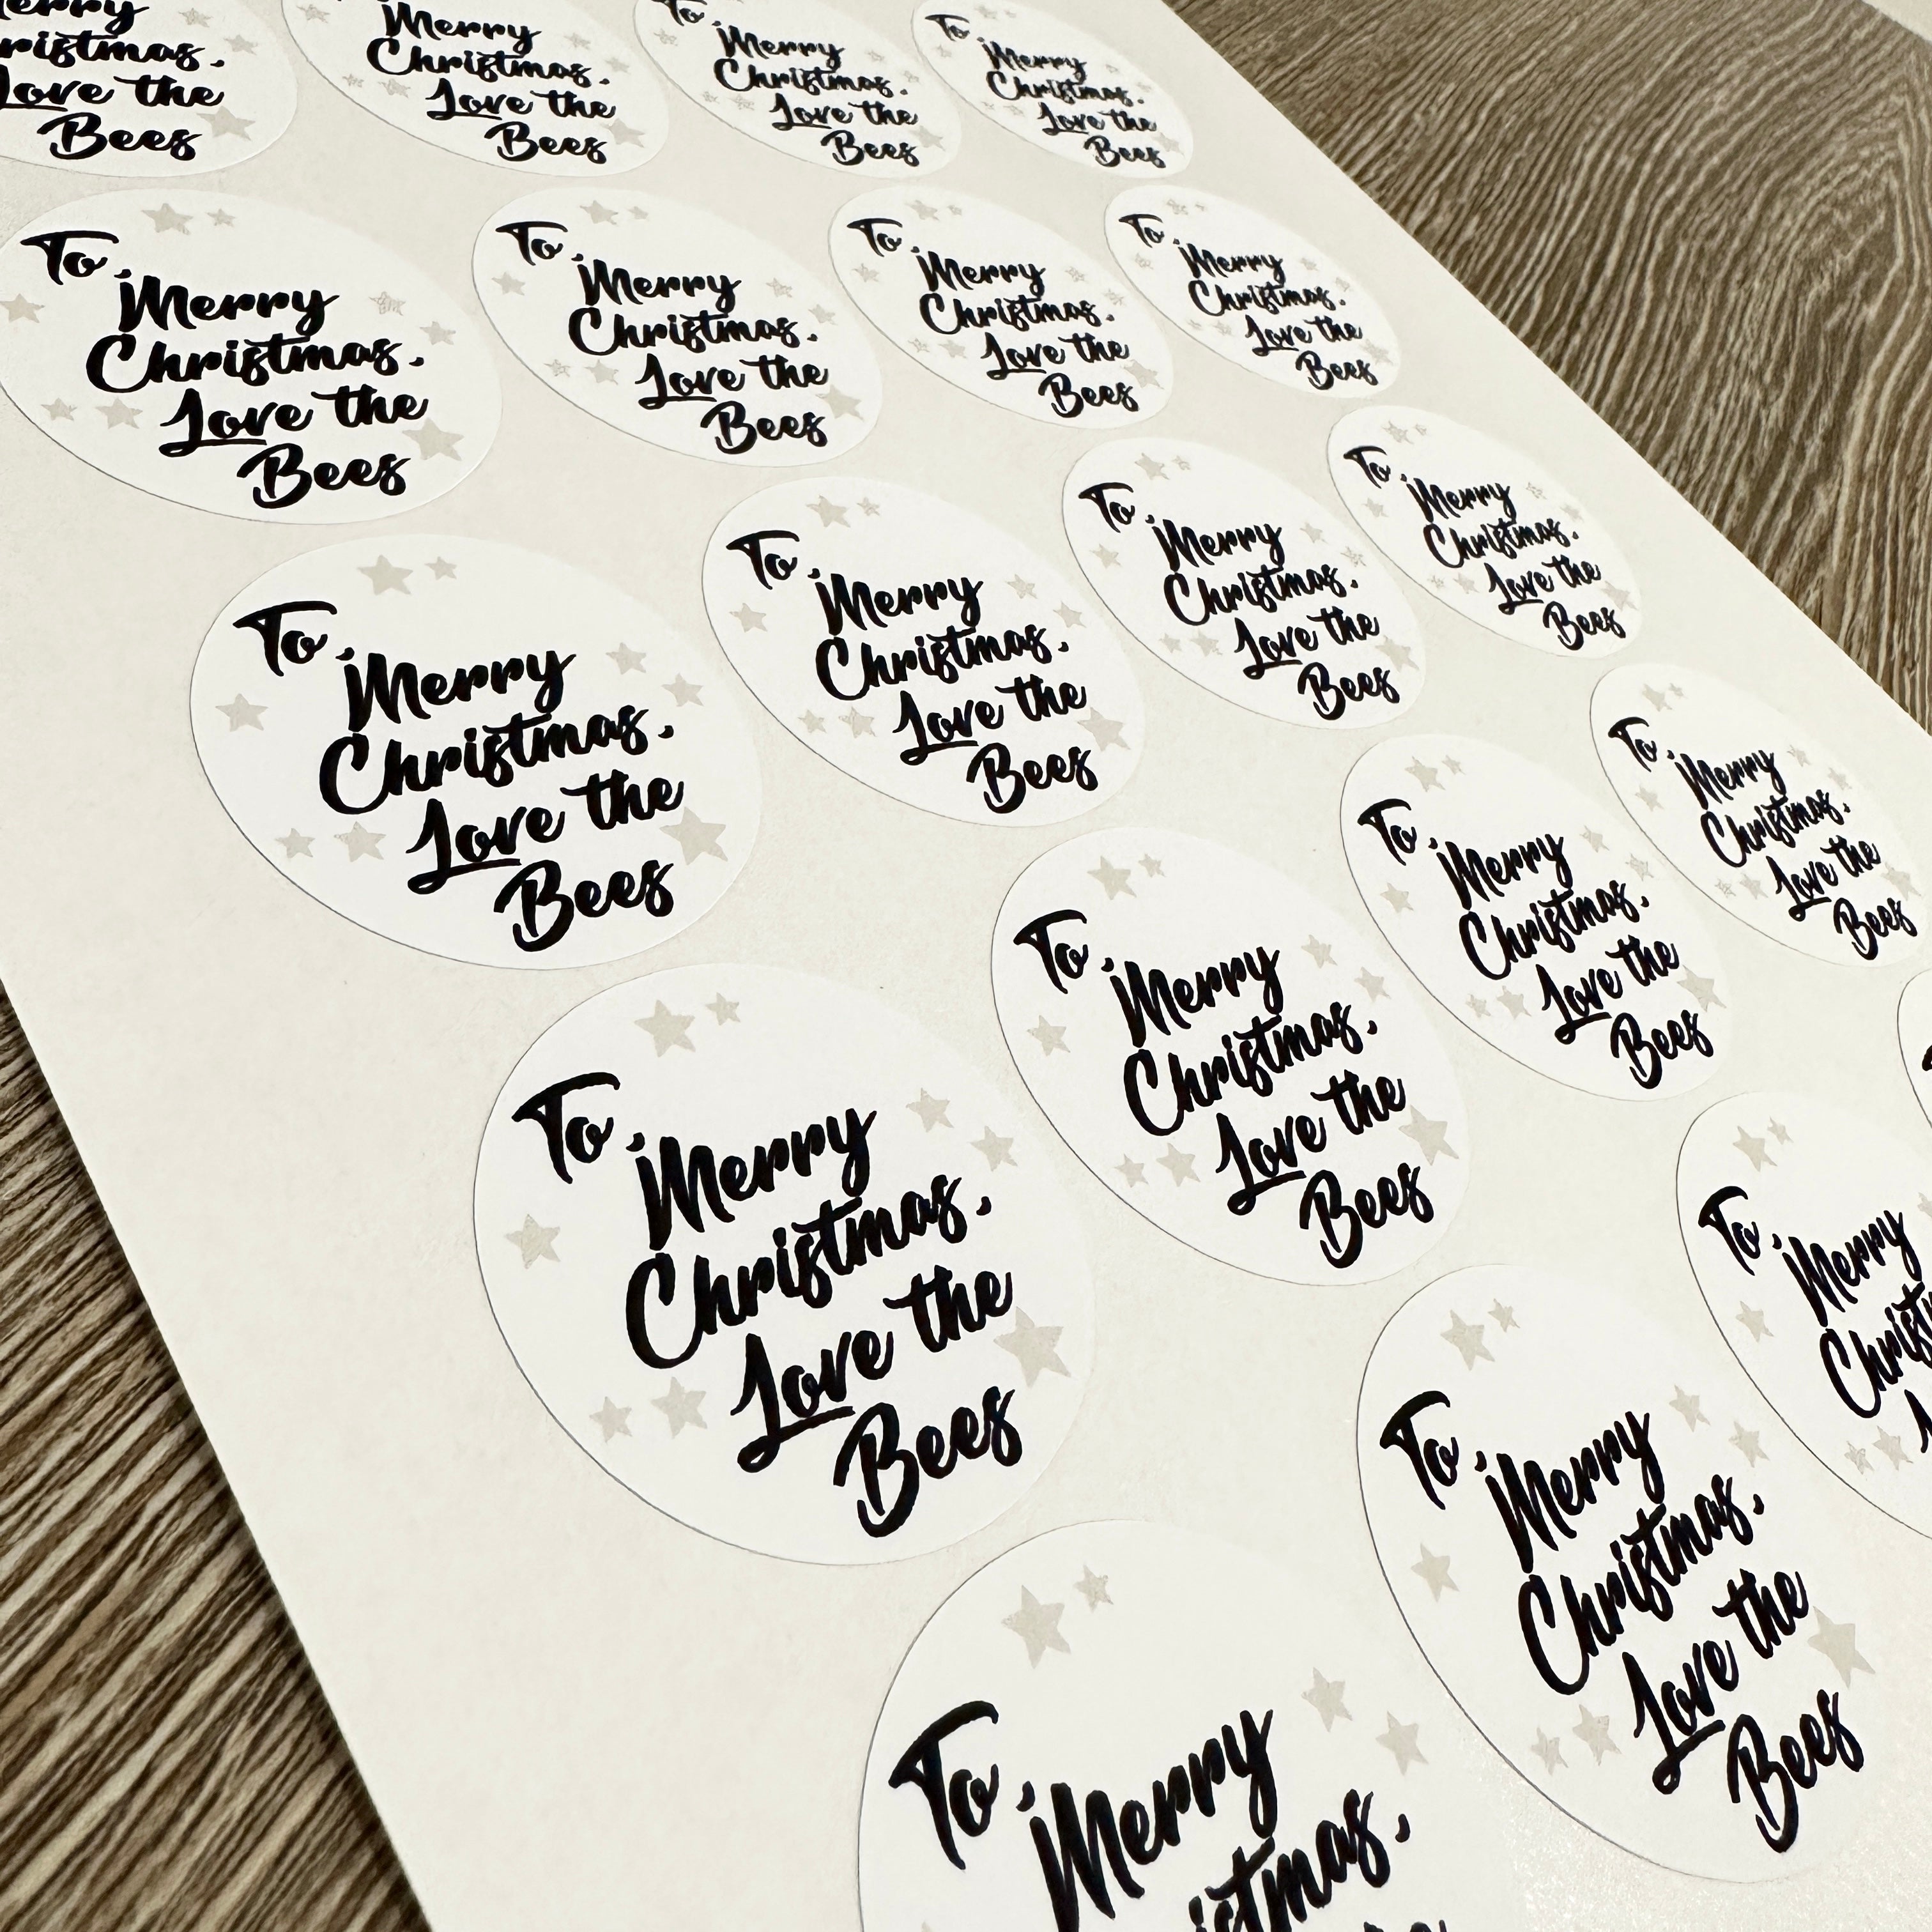 erry
ristmas,
Love the
Bees
Merry
Christmas,
Love the
Bees
To ,
Merry
Christmas,
Love the
Bees
To ,
Merry
Christmas,
Love the
Bees
To ,
Merry
Christmas,
Love the
Bees
To ,
Merry
Christmas,
Love the
Bees
To ,
Merry
Christmas,
Love the
Bees
To ,
Merry
Christmas,
Love the
Bees
To ,
Merry
Christmas,
Love the
Bees
To ,
Merry
Christmas,
Love the
Bees
To ,
Merry
Christmas,
Love the
Bees
To ,
Merry
Christmas,
Love the
Bees
To ,
Merry
Christmas,
Love the
Bees
To ,
Merry
Christmas,
Love the
Bees
To ,
Merry
Christmas,
Love the
Bees
To ,
Merry
Christmas,
Love the
Bees
To ,
Merry
istmas,
To ,
Merry
Christmas,
Love the
Bees
To ,
Merry
Christ